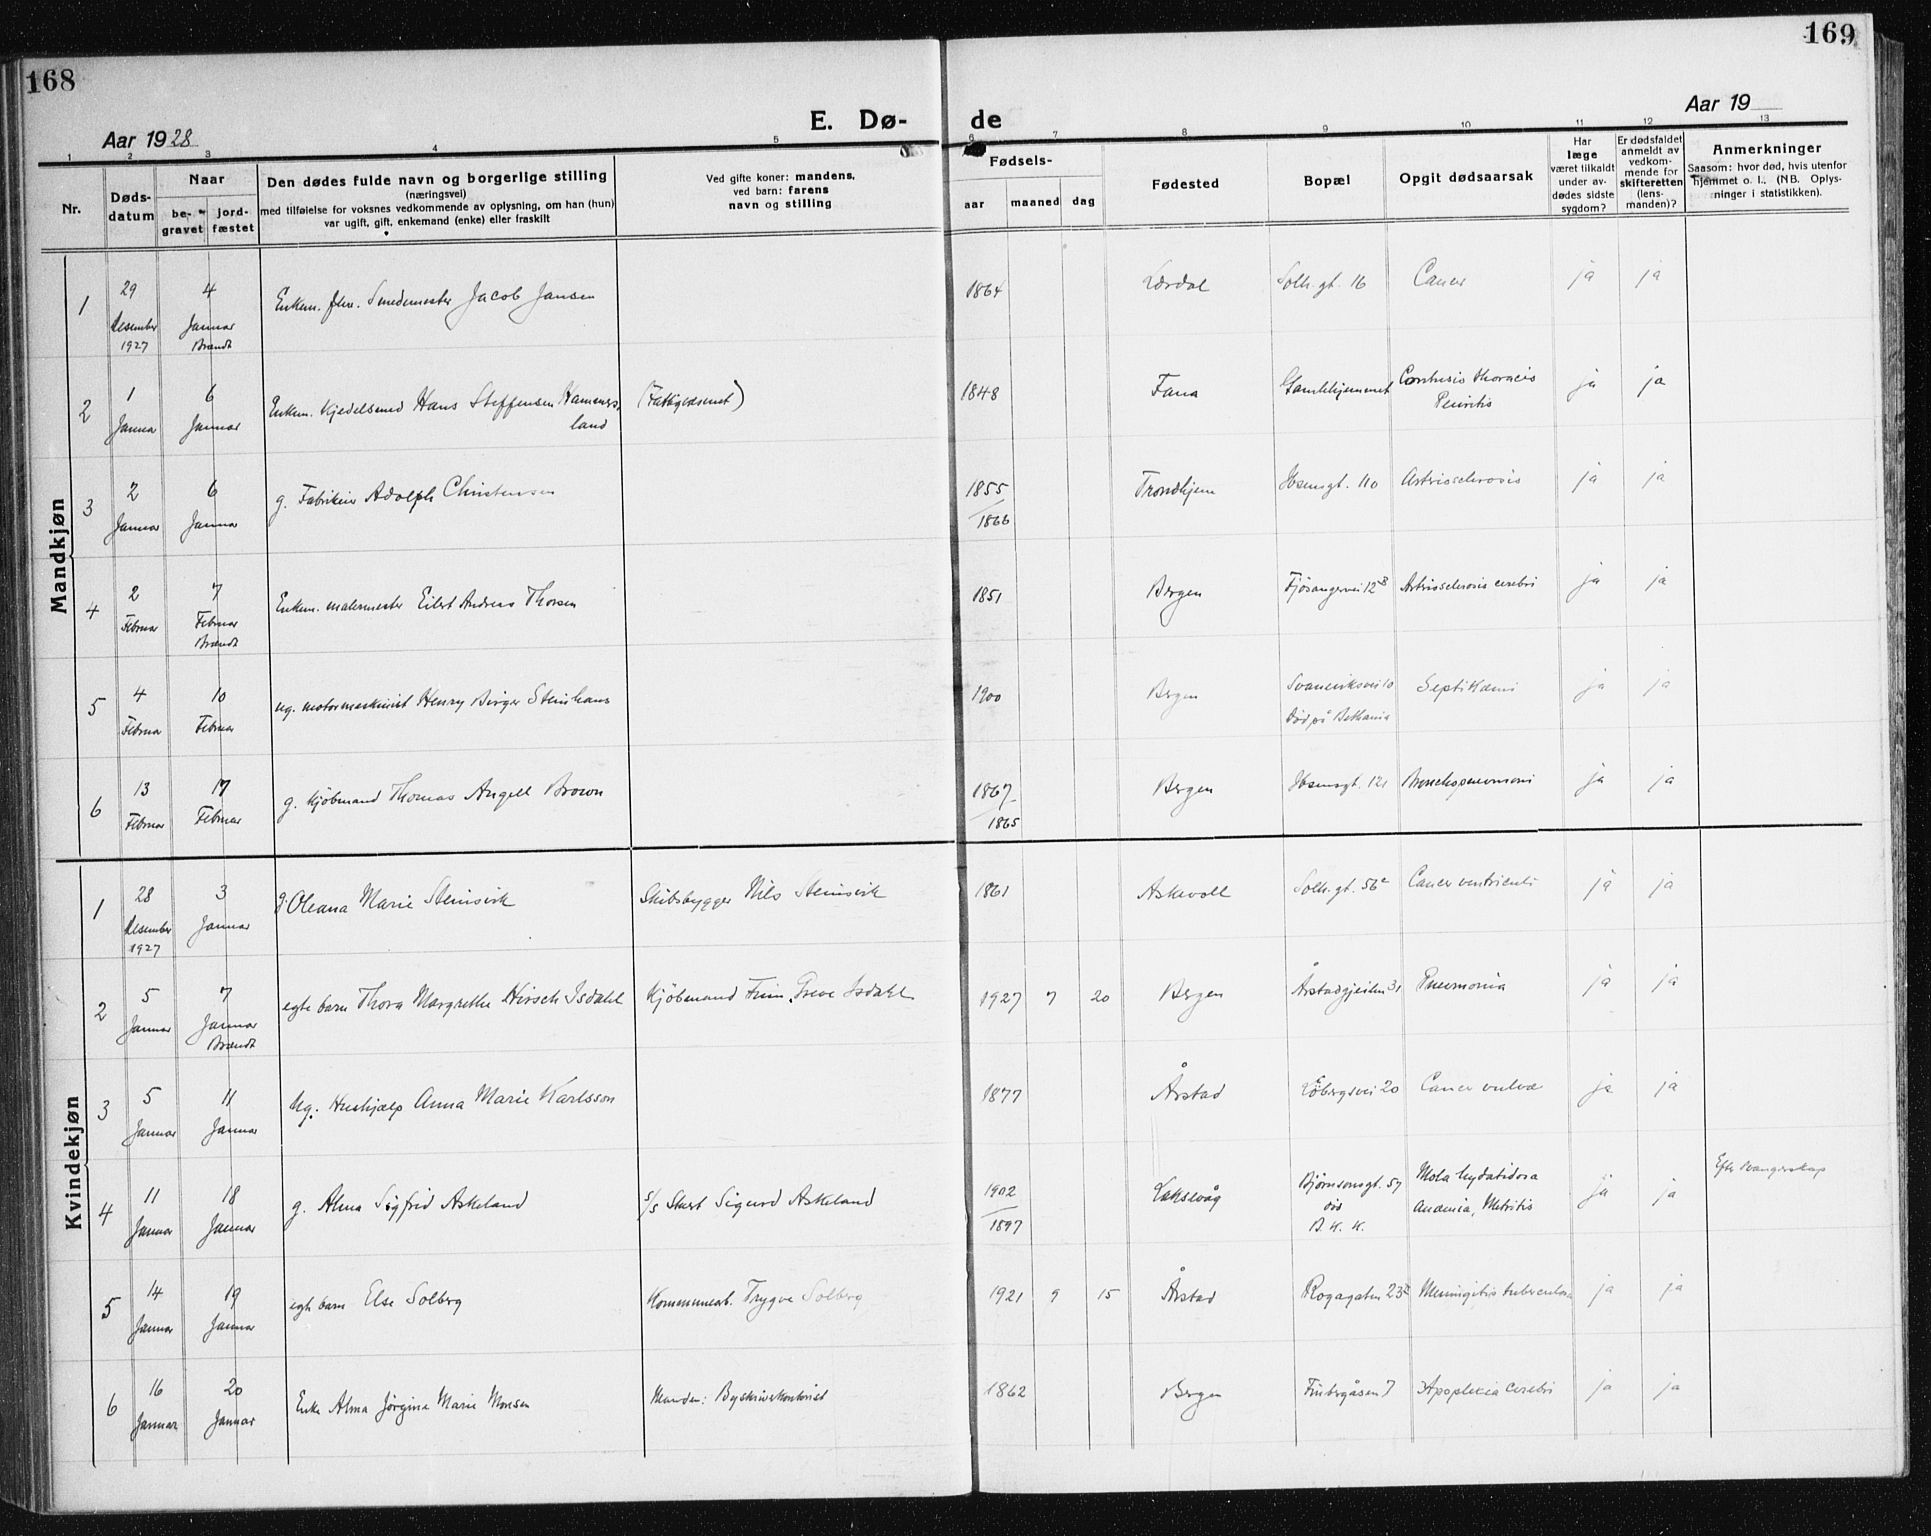 168
169
Aar 1928
E. Dø-
de
Aar 19
1 2 3 4 5 6 7 8 9 10 11 12 13
Nr.
Døds-
datum
Naar
be-
gravet
jord-
fæstet
Den dødes fulde navn og borgerlige stilling
(næringsvei)
med tilføielse for voksnes vedkommende av oplysning, om han (hun)
var ugift, gift, enkemand (enke) eller fraskilt
Ved gifte koner: mandens,
ved barn: farens
navn og stilling
Fødsels-
aar maaned dag
Fødested
Bopæl
Opgit dødsaarsak
Har
læge
været tilkaldt
under av-
dødes sidste
sygdom?
Er dødsfaldet
anmeldt av
vedkom-
mende for
skifteretten
(lens-
manden)?
Anmerkninger
Saasom: hvor død, hvis utenfor
hjemmet o. l. (NB. Oplys-
ninger i statistikken).
Mandkjøn
1 29 Desember 1927 4 Januar Brændt Enkem. fhv. Smedemester Jacob Jansen 1864 Lærdal Solh. gt. 16 Cancer ja ja
2 1 Januar 6 Januar Enkem. Kjedelsmed Hans Steffensen Hamers-
land (Fattigvæsenet) 1848 Fana Gamlehjemmet Contusio thoracis
Pleuritis ja ja
3 2 Januar 6 Januar g. Fabrikeier Adolph Christensen 1855
/1866 Trondhjem Ibsensgt. 110 Artriosclerosis ja ja
4 2 Februar 7 Februar Brændt Enkem. malermester Eilert Andreas Thorsen 1851 Bergen Fjøsangervei 12B Artriosclerosis cerebri ja ja
5 4 Februar 10 Februar ug. motormaskinist Henry Birger Steinhaus 1900 Bergen Svaneviksvei 10
død på Bethania Septikæmi ja ja
6 13 Februar 17 Februar g. Kjøbmand Thomas Angell Brown 1867
/1865 Bergen Ibsensgt. 121 Bronchopneumoni ja ja
Kvindekjøn
1 28 Desember 1927 3 Januar g. Oleana Marie Steinsvik Skibsbygger Nils Steinsvik 1861 Askevoll Solh. gt. 56c Cancer ventriculi ja ja
2 5 Januar 7 Januar Brændt egte barn Thora Margrethe Hirsch Isdahl Kjøbmand Finn Greve Isdahl 1927 7 20 Bergen Årstadgjeilen 31 Pneumonia ja ja
3 5 Januar 11 Januar Ug. Hushjælp Anna Marie Karlsson 1877 Årstad Løbergsvei 20 Cancer vulvæ ja ja
4 11 Januar 18 Januar g. Alma Sigfrid Askeland s/s Stuert Sigurd Askeland 1902
/1897 Laksevåg Bjørnsonsgt. 57
død
B. K. K. Mola hydatidosa
Anæmia, Metritis ja ja Efter svangerskap
5 14 Januar 19 Januar egte barn Else Solberg Kommunearb. Trygve Solberg 1921 9 15 Årstad Rogagaten 23 Meningitis tuberculosa ja ja
6 16 Januar 20 Januar Enke Alma Jørgine Marie Monsen Manden: Byskriverkontorist 1862 Bergen Finbergåsen 7 Apoplexia cerebri ja ja